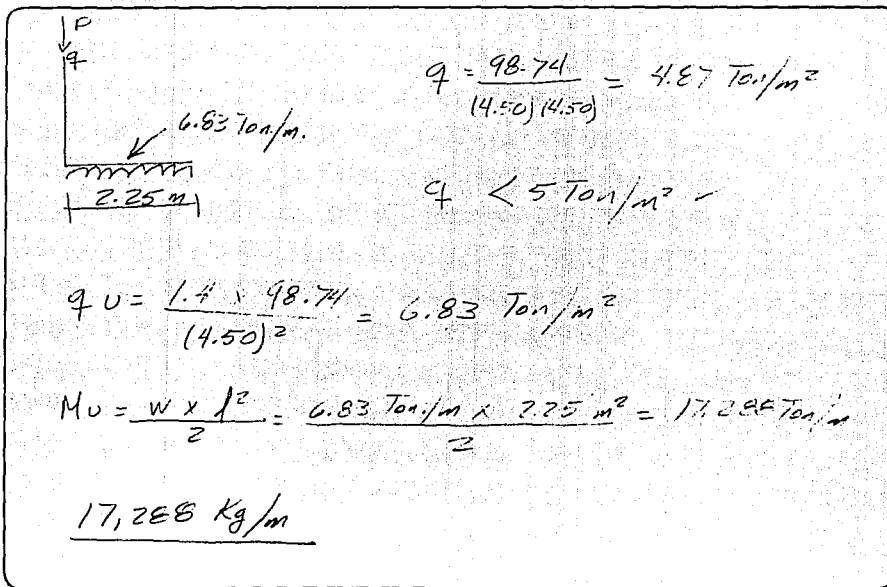 P
q
6.83 Ton/m.
2.25 m
q = 98.74 / (4.50)(4.50) = 4.87 Ton/m²
q < 5 Ton/m²
q U = 1.4 x 98.74 / (4.50)² = 6.83 Ton/m²
MU = w x l² / 2 = 6.83 Ton/m x 2.25 m² / 2 = 17.288 Ton/m
17,288 Kg/m